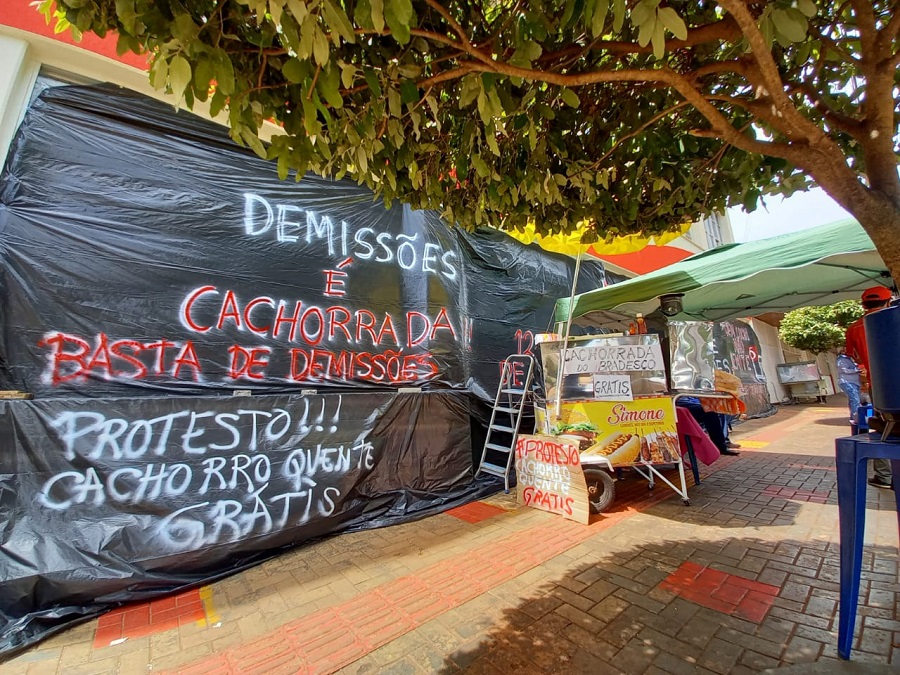 DEMISSÕES
É
CACHORRADA!!
BASTA DE DEMISSÕES
PROTESTO!!!
CACHORRO QUENTE
GRÁTIS
CACHORRADA
DO BRADESCO
GRATIS
Simone
#PROTESTO
CACHORRO
QUENTE
GRATIS